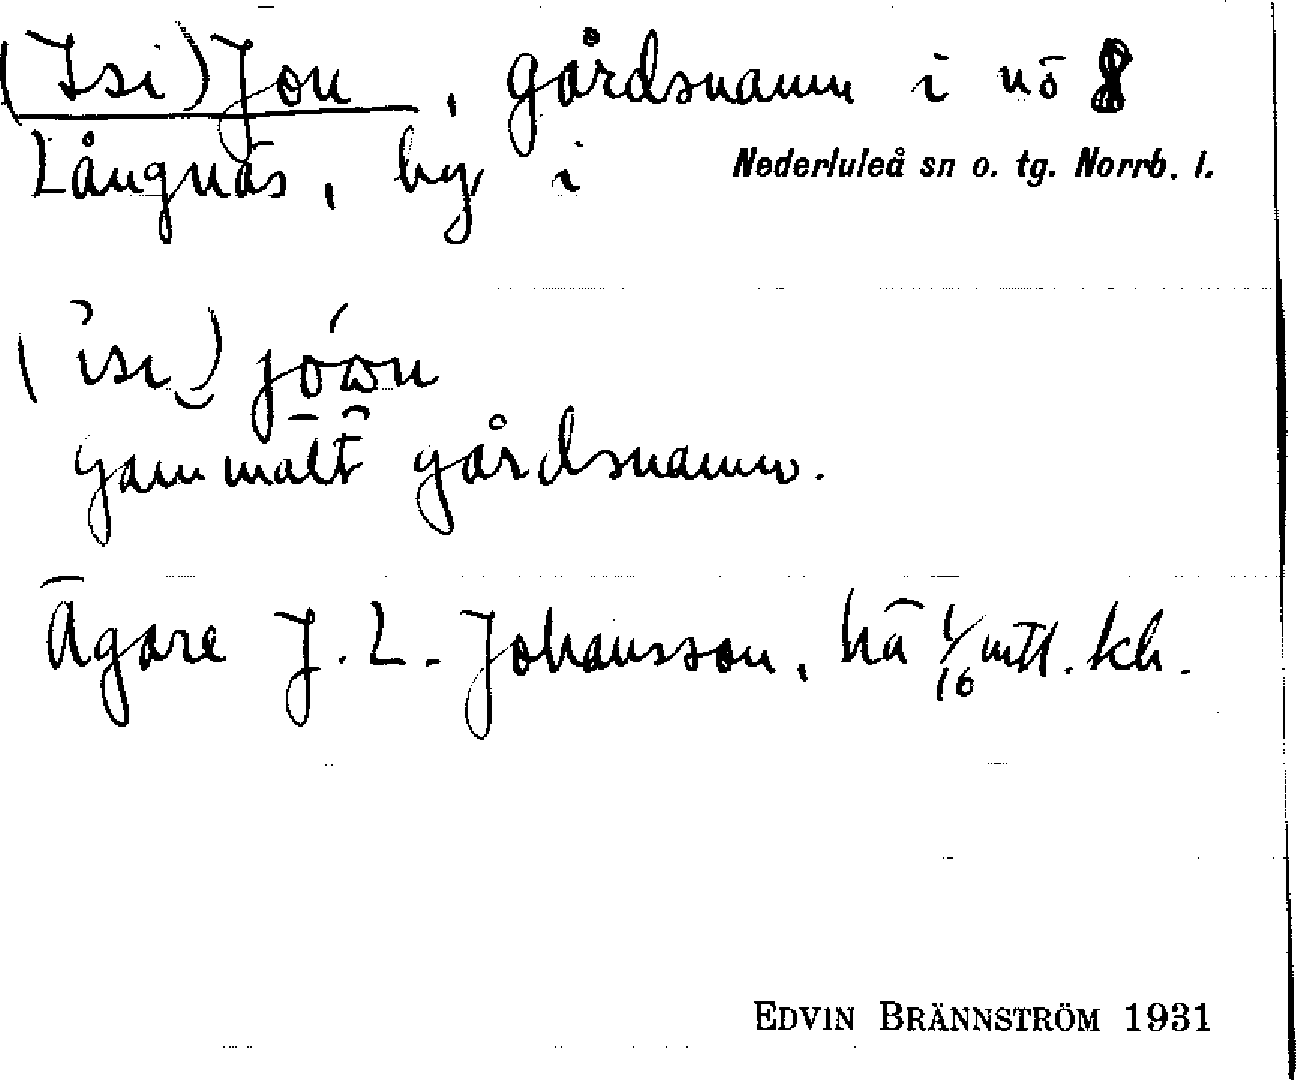 (Isi)Jon, gårdsnamn i nö 8
Långnäs, by i Nederluleå sn o. tg. Norrb. l.
gammalt gårdsnamn.
Ägare J. L. Johansson, hä 1/16 mtl. kh.
EDVIN BRÄNNSTRÖM 1931